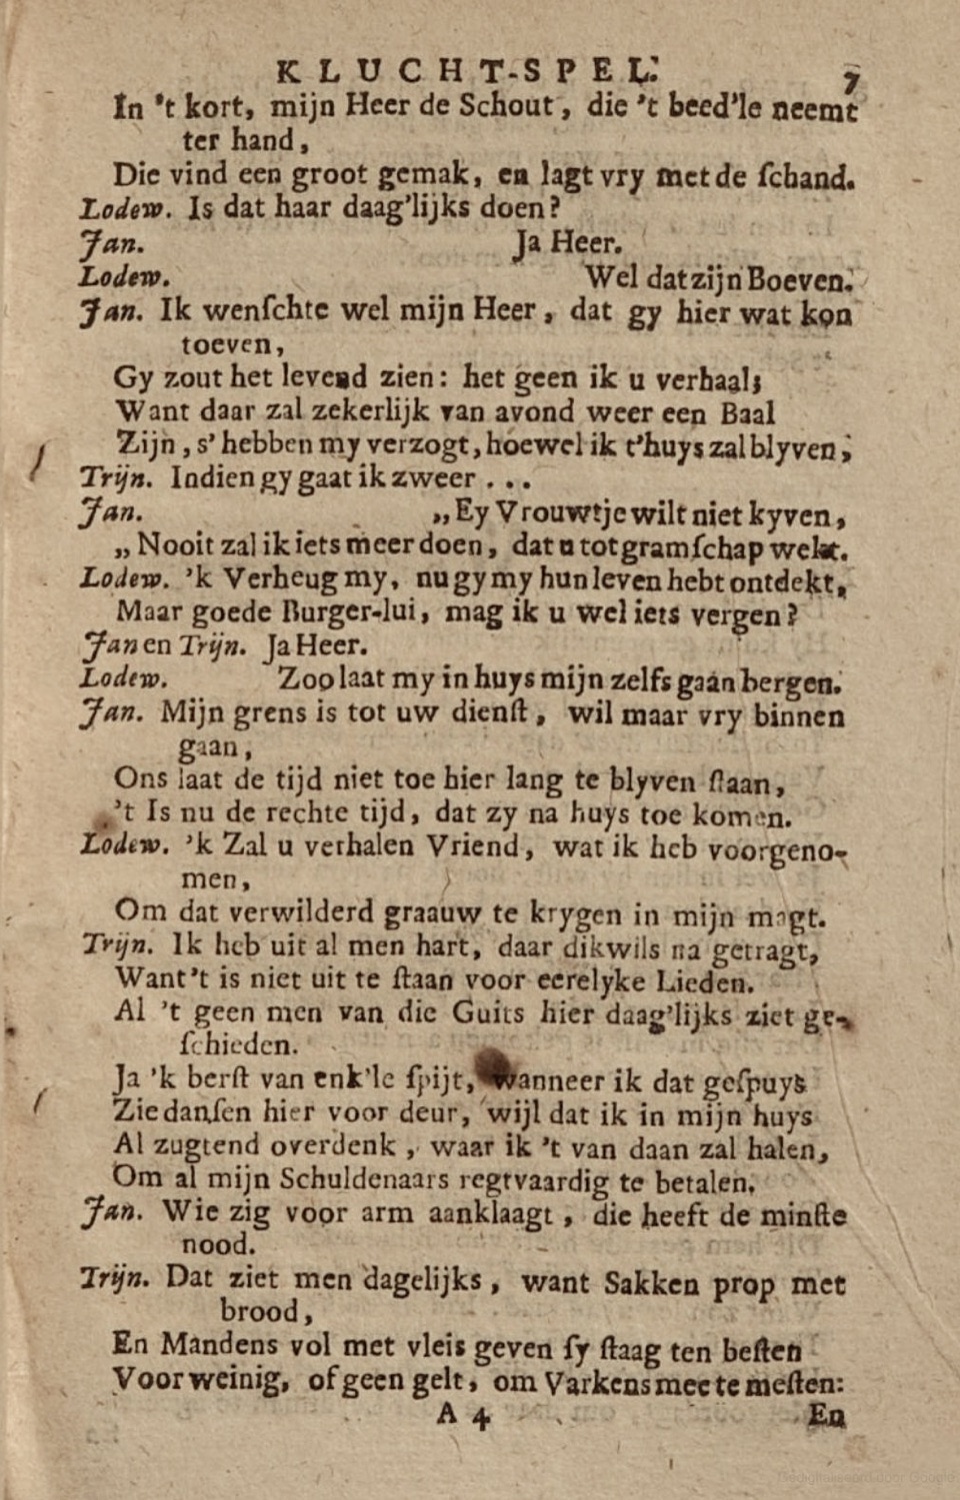 KLUCHT-SPEL. 7
In 't kort, mijn Heer de Schout, die 't beed'le neemt
ter hand,
Die vind een groot gemak, en lagt vry met de schand.
Lodew. Is dat haar daag'lijks doen?
Jan. Ja Heer.
Lodew. Wel dat zijn Boeven.
Jan. Ik wenschte wel mijn Heer, dat gy hier wat kon
toeven,
Gy zout het levend zien: het geen ik u verhaal;
Want daar zal zekerlijk van avond weer een Baal
Zijn, s' hebben my verzogt, hoewel ik t'huys zal blyven;
Trijn. Indien gy gaat ik zweer ...
Jan. „Ey Vrouwtje wilt niet kyven,
„Nooit zal ik iets meer doen, dat u tot gramschap wekt.
Lodew. 'k Verheug my, nu gy my hun leven hebt ontdekt,
Maar goede Burger-lui, mag ik u wel iets vergen?
Jan en Trijn. Ja Heer.
Lodew. Zoo laat my in huys mijn zelfs gaan bergen.
Jan. Mijn grens is tot uw dienst, wil maar vry binnen
gaan,
Ons laat de tijd niet toe hier lang te blyven staan,
't Is nu de rechte tijd, dat zy na huys toe komen.
Lodew. 'k Zal u verhalen Vriend, wat ik heb voorgeno-
men,
Om dat verwilderd graauw te krygen in mijn magt.
Trijn. Ik heb uit al men hart, daar dikwils na getragt,
Want 't is niet uit te staan voor eerelyke Lieden.
Al 't geen men van die Guits hier daag'lijks ziet ge-
schieden.
Ja 'k berst van enk'le spijt, wanneer ik dat gespuys
Zie dansen hier voor deur, wijl dat ik in mijn huys
Al zugtend overdenk, waar ik 't van daan zal halen,
Om al mijn Schuldenaars regtvaardig te betalen.
Jan. Wie zig voor arm aanklaagt, die heeft de minste
nood.
Trijn. Dat ziet men dagelijks, want Sakken prop met
brood,
En Mandens vol met vleis geven sy staag ten besten
Voor weinig, of geen gelt, om Varkens mee te mesten:
A 4 En
Gedigitaliseerd door Google